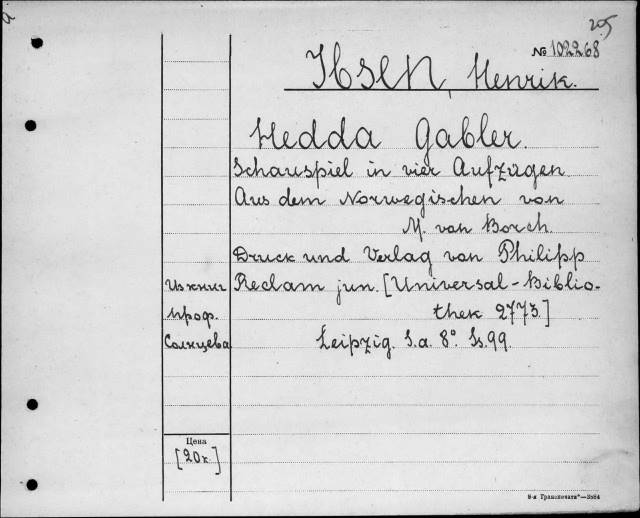 205
№ 102268
Ibsen, Henrik.
Hedda Gabler.
Schauspiel in vier Aufzügen
Aus dem Norwegischen von
M. von Borch.
Druck und Verlag von Philipp
Из книг Reclam jun. [Universal-Biblio-
проф. thek 2773.]
Солнцева Leipzig. S.a. 8°. Ss. 99.
Цена
[20к.]
8-я Транспечати"—3584